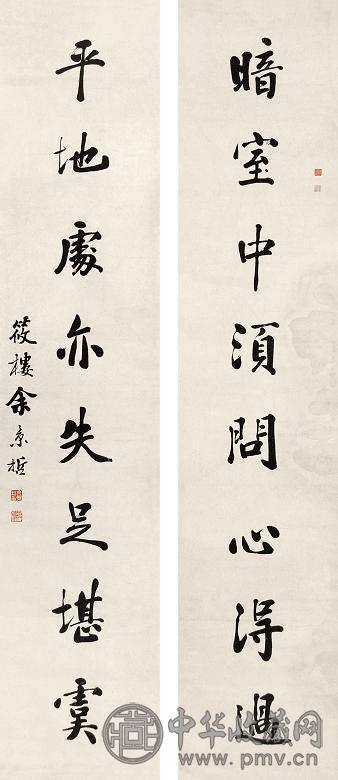 暗室中須問心得過
平地處亦失足堪虞
筱樓余
中华收藏网
www.pmv.cn